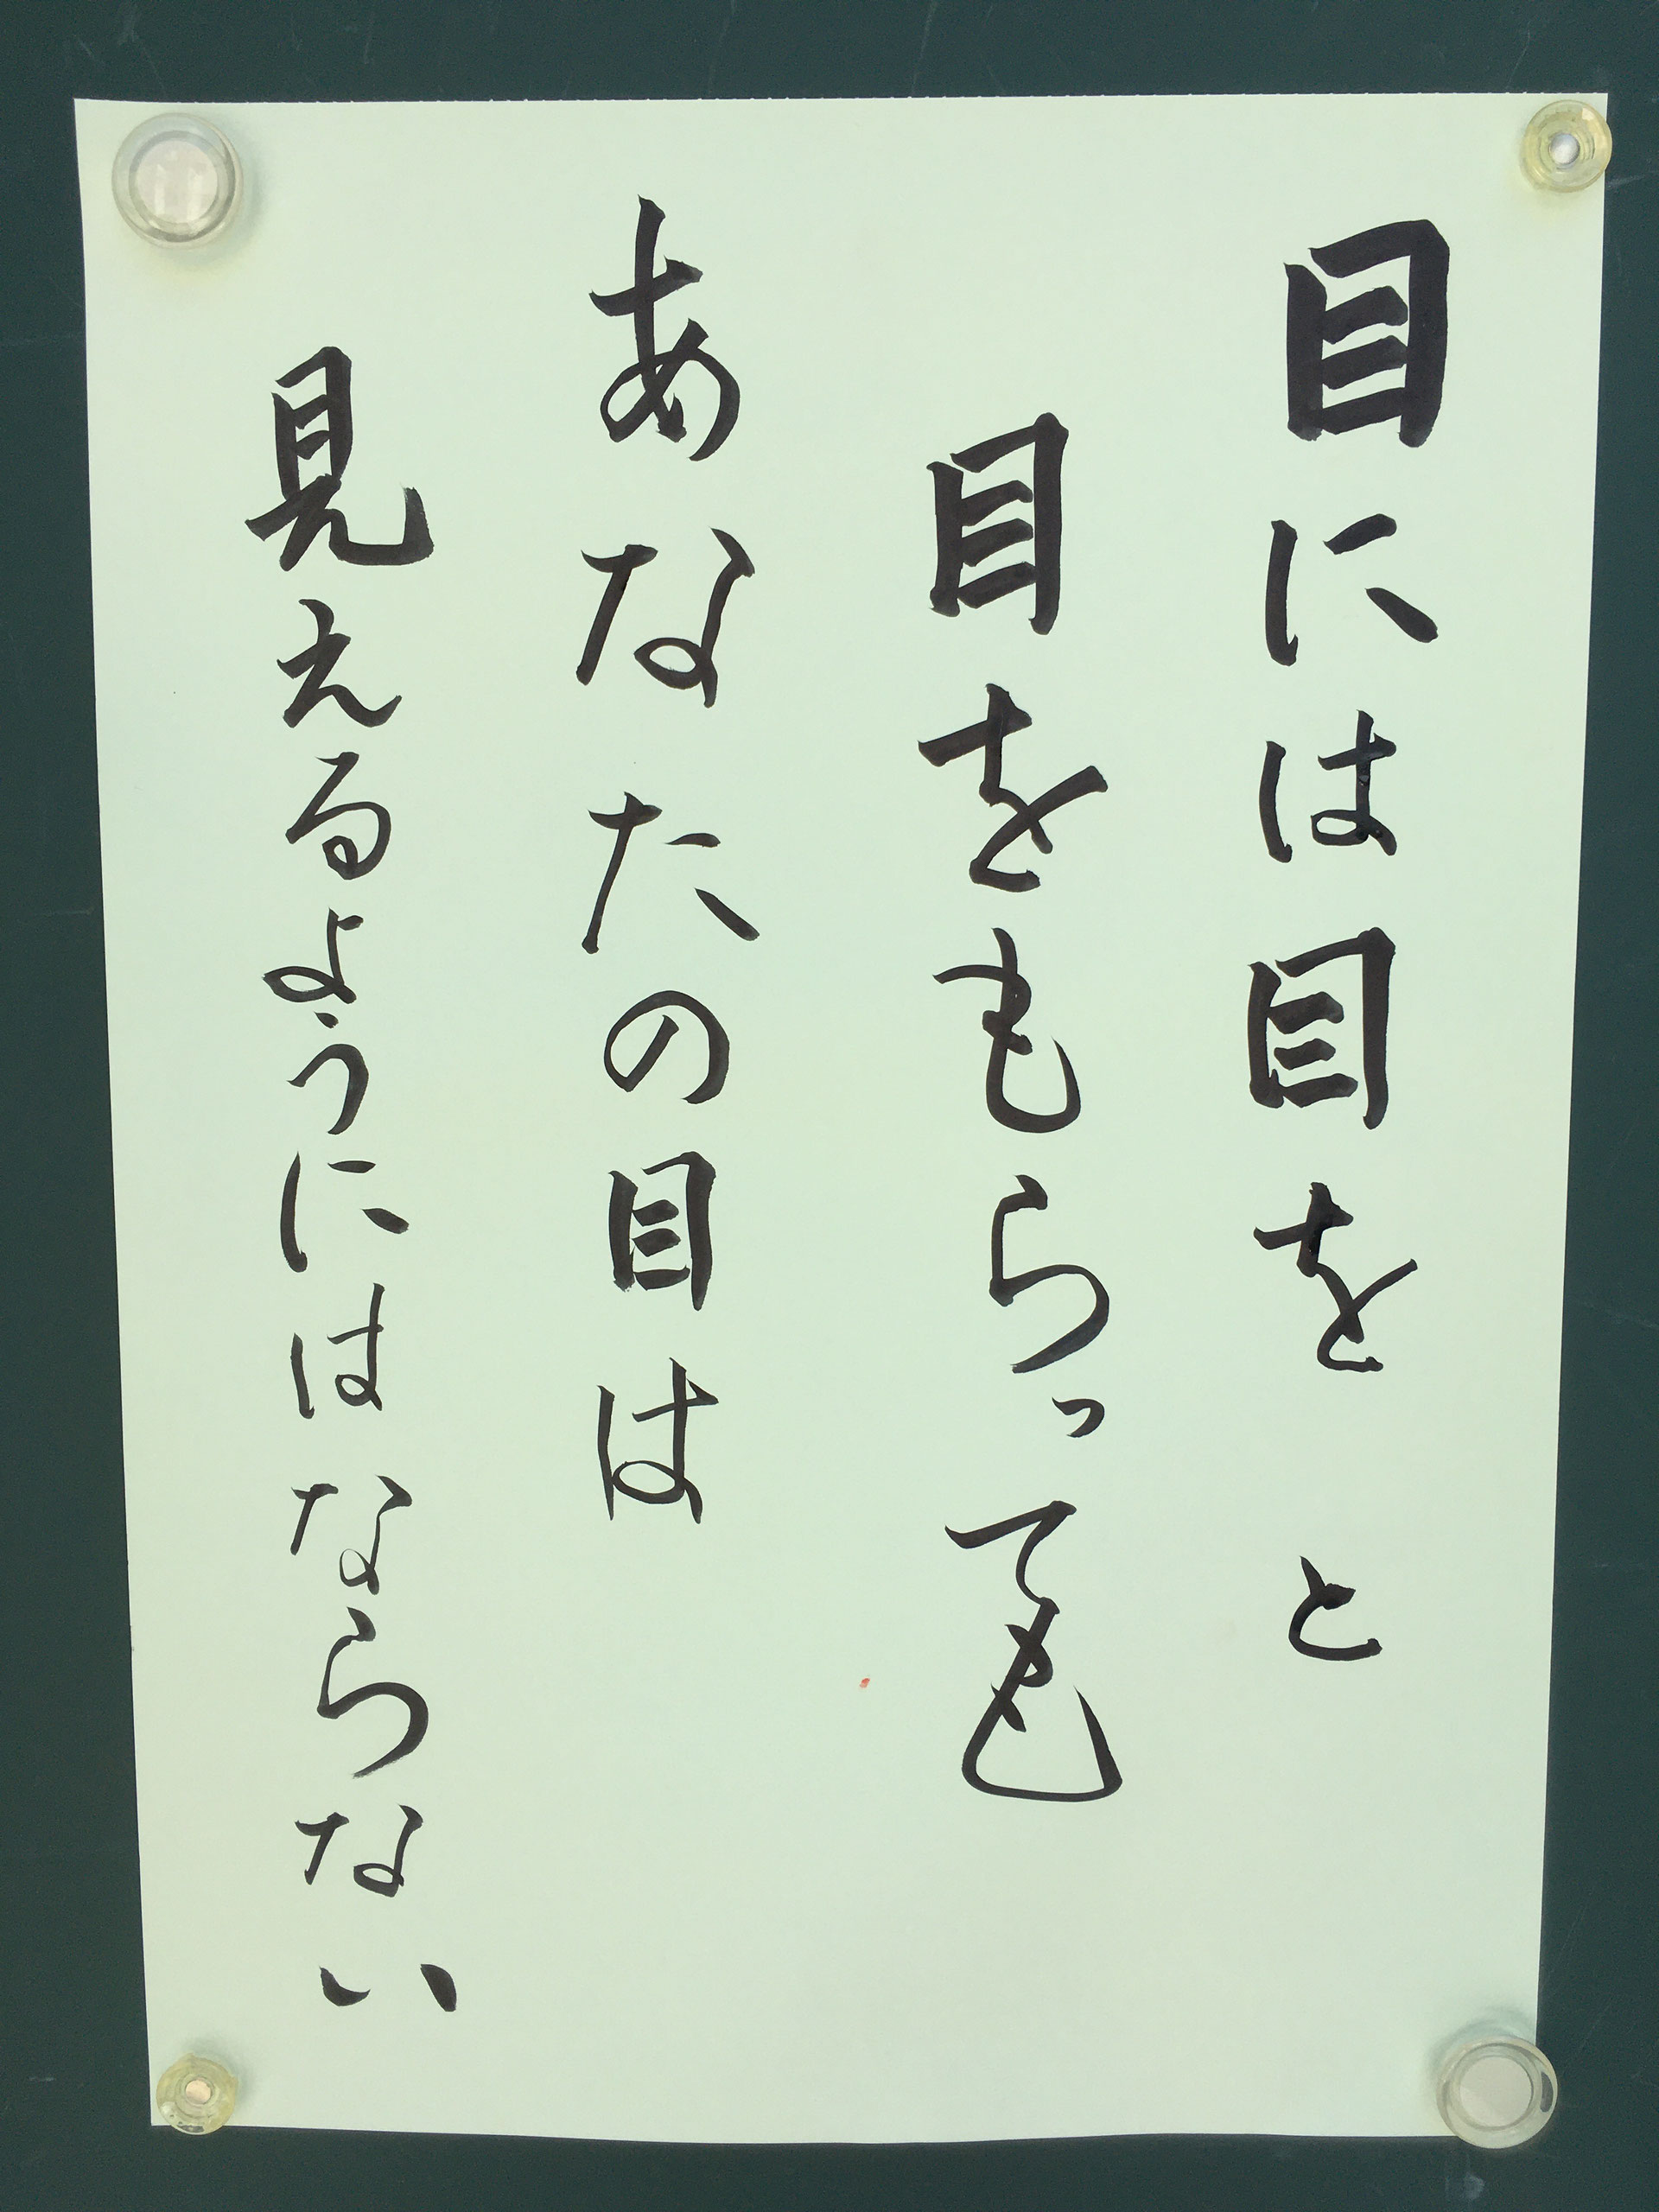 目には目をと
目をもらっても
あなたの目は
見えるようにはならない